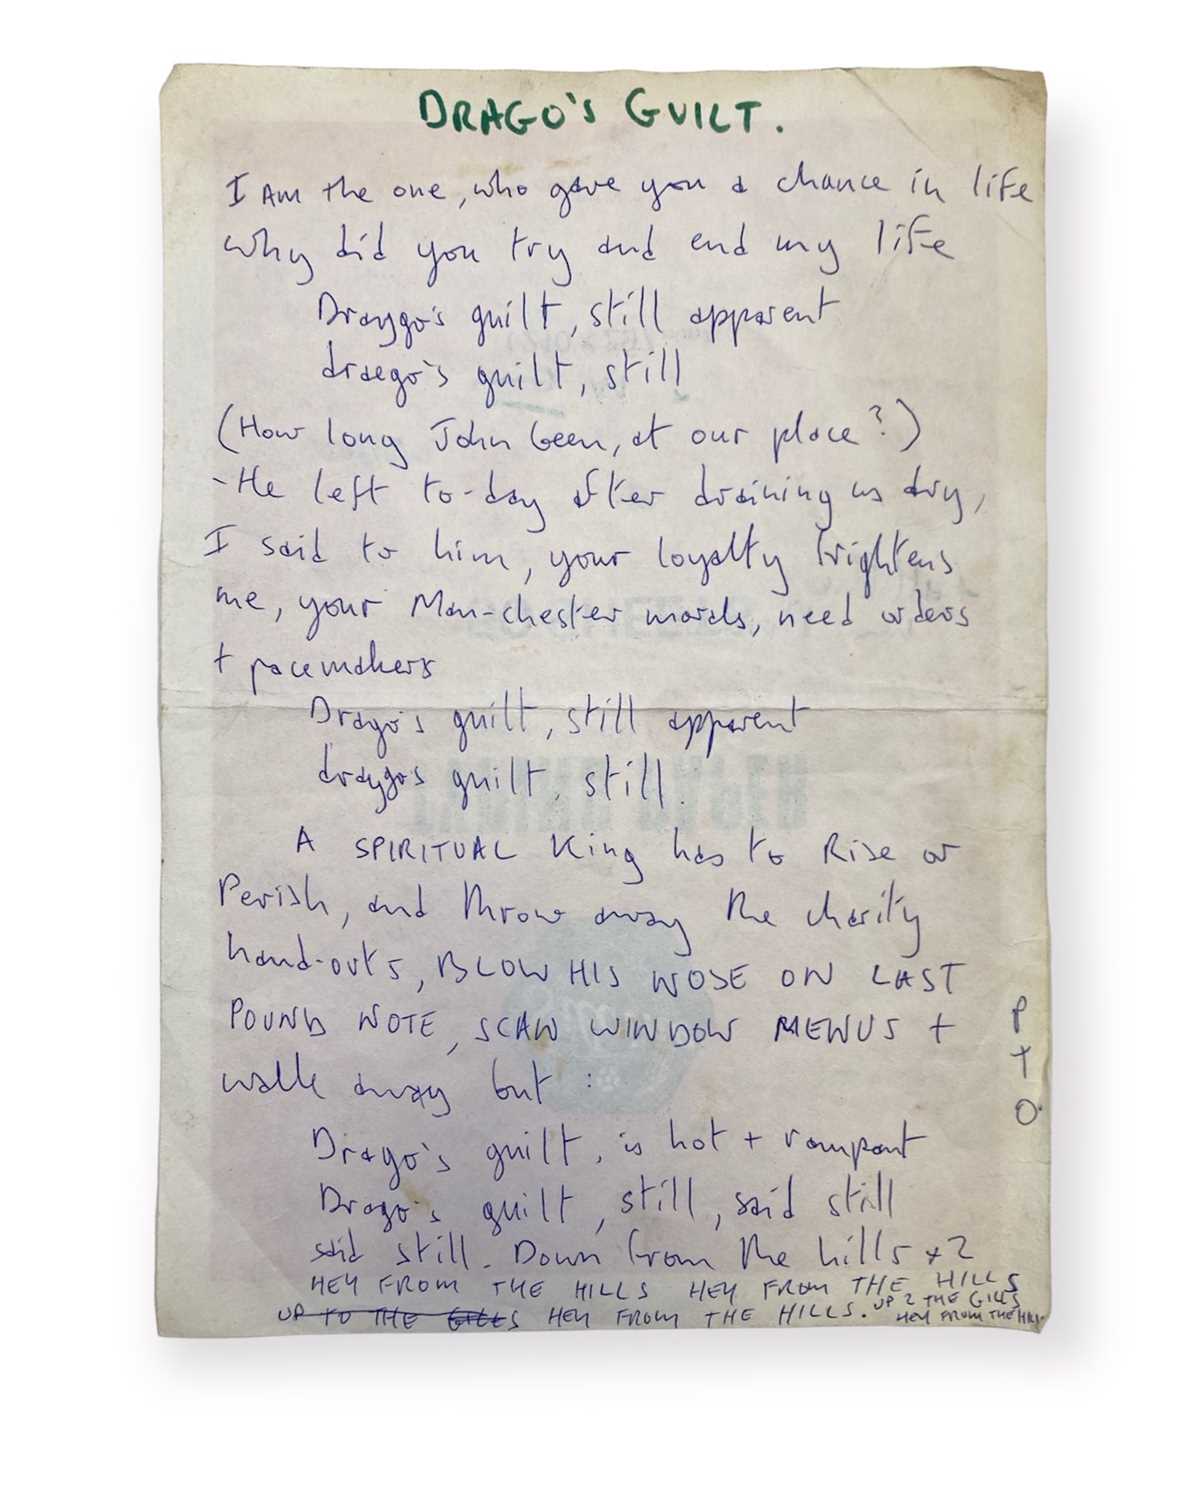 DRAGO'S GUILT.
I AM the one, who gave you a chance in life
Why did you try and end my life
Draygo's guilt, still apparent
draego's guilt, still
(How long John been, at our place?)
- He left to-day after draining us dry,
I said to him, your loyalty frightens
me, your Man-chester morals, need orders
+ pacemakers
Drago's guilt, still apparent
draygo's guilt, still.
A SPIRITUAL King has to Rise or
Perish, and throw away the charity
hand-outs, BLOW HIS NOSE ON LAST
POUND NOTE, SCAN WINDOW MENUS +
walk away but :
P
T
O.
Drago's guilt, is hot + rampant
Drago's guilt, still, said still
said still. Down from the hills x2
HEY FROM THE HILLS HEY FROM THE HILLS
UP TO THE GILLS HEY FROM THE HILLS. UP 2 THE GILLS
HEY FROM THE HILLS